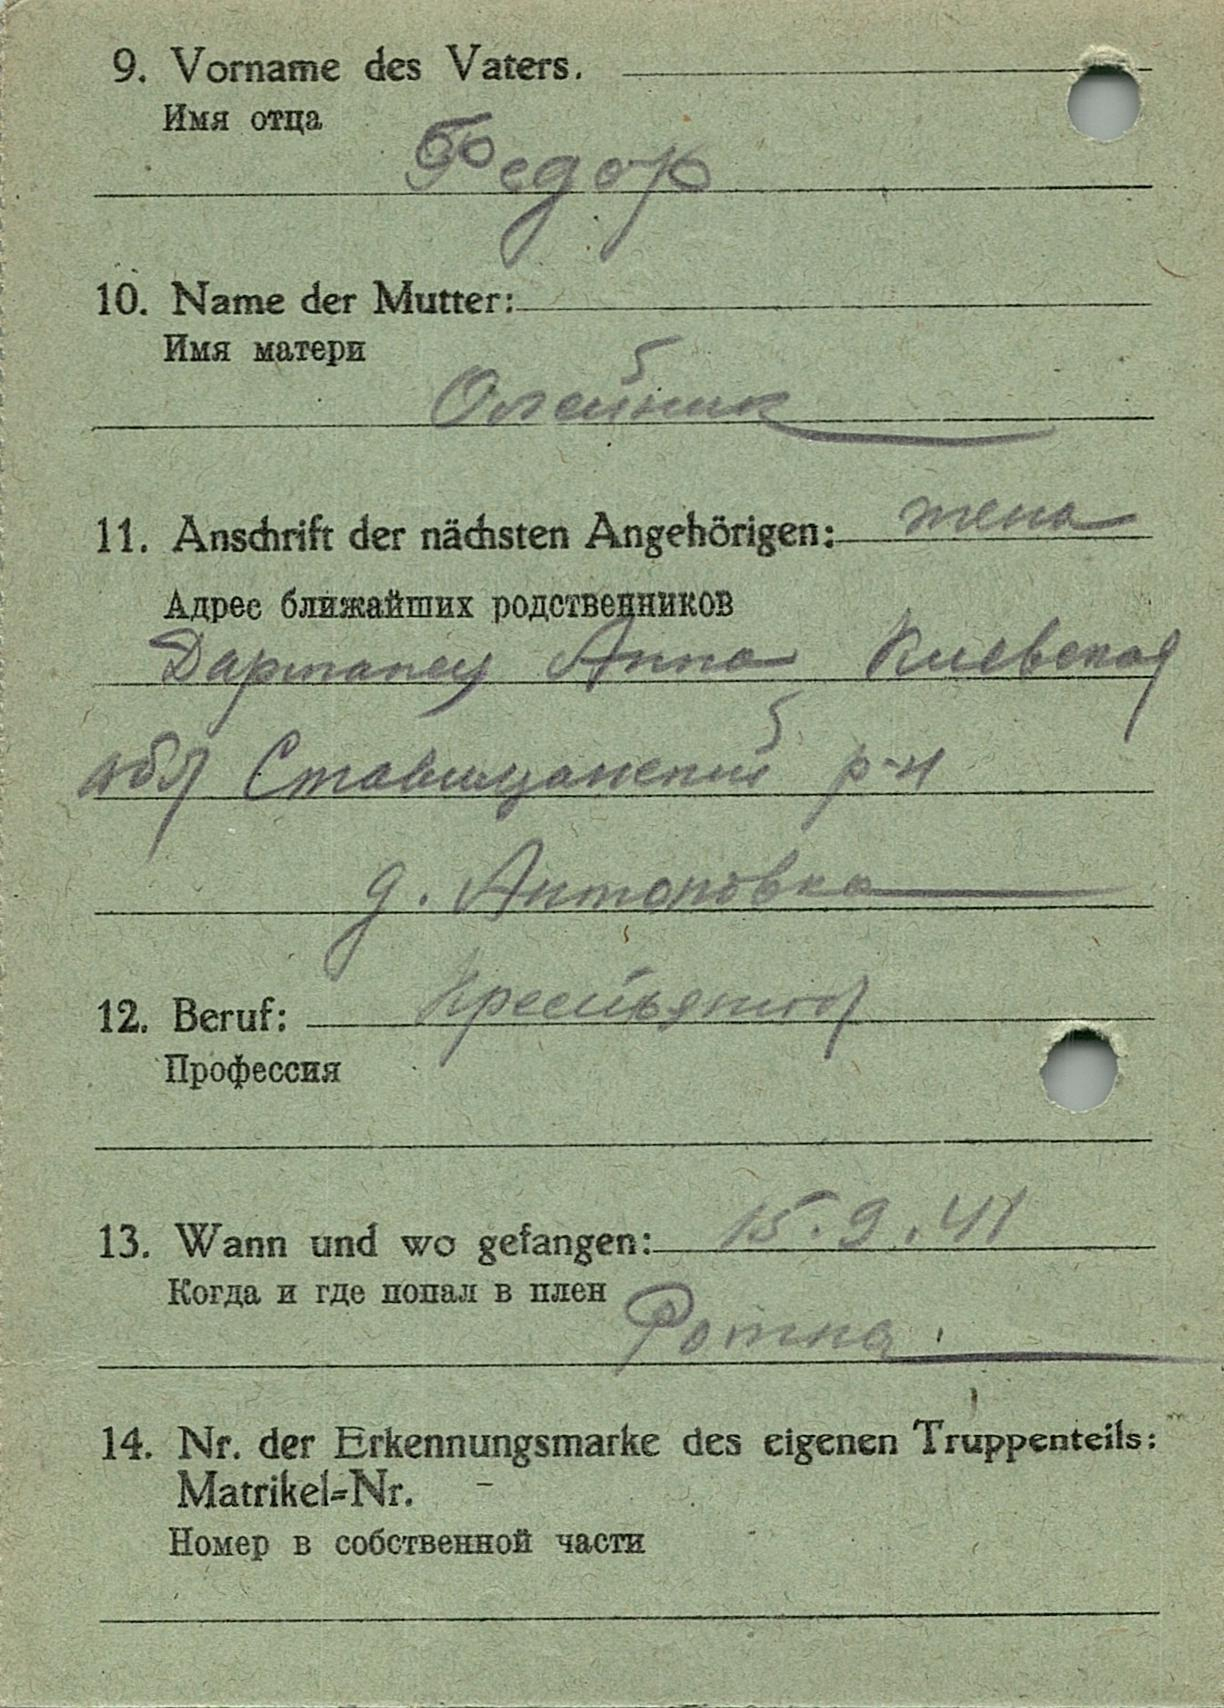 9. Vorname des Vaters.
Имя отца
Федор
10. Name der Mutter:
Имя матери
Олейник
11. Anschrift der nächsten Angehörigen: жена
Адрес ближайших родственников
Дартанец Анна Киевская
обл Ставищанский р-н
д. Антоновка
12. Beruf: Крестьянин
Профессия
13. Wann und wo gefangen: 15.9.41
Когда и где попал в плен
14. Nr. der Erkennungsmarke des eigenen Truppenteils:
Matrikel-Nr. -
Номер в собственной части